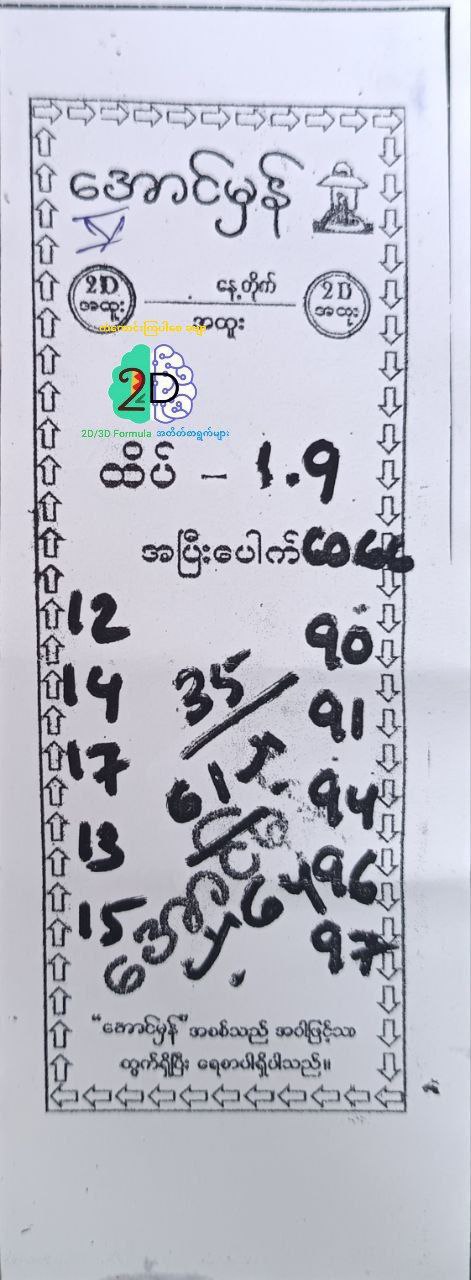 အောင်မှန်
2D အထူး
နေ့တိုက်
အထူး
2D အထူး
2D
2D/3D Formula အတိတ်စာရွက်များ
ထိပ် - 1.9
အပြီးပေါက်
12 90
14 35 91
17 61 94
13 96
15 64 97
"အောင်မှန်" အစစ်သည် အဝါဖြင့်သာ
ထွက်ရှိပြီး ရေစာပါရှိပါသည်။